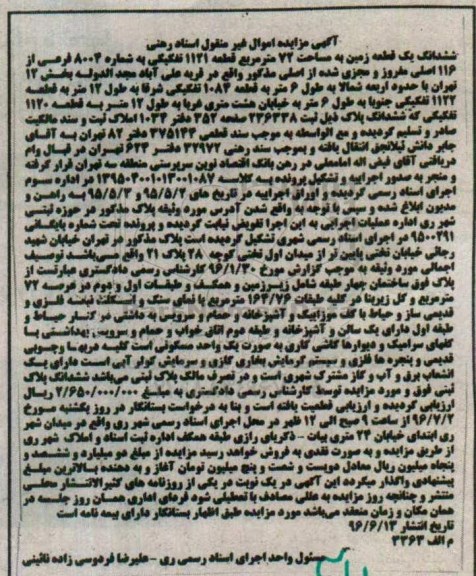 آگهی مزایده اموال غیر منقول اسناد رهنی
ششدانگ یک قطعه زمین به مساحت ۷۲ مترمربع قطعه ۱۱۲۱ تفکیکی به شماره ۸۰۰۴ فرعی از
۱۱۶ اصلی مفروز و مجزی شده از اصلی مذکور واقع در قریه علی آباد مجد الدوله بخش ۱۲
تهران با حدود اربعه شمالا به طول ۶ متر به قطعه ۱۰۸۴ تفکیکی شرقا به طول ۱۲ متر به قطعه
۱۱۲۲ تفکیکی جنوبا به طول ۶ متر به خیابان هشت متری غربا به طول ۱۲ متر به قطعه ۱۱۲۰
تفکیکی که ششدانگ پلاک ذیل ثبت ۲۳۶۳۳۸ صفحه ۳۵۲ دفتر ۱۰۳۴ املاک ثبت و سند مالکیت
صادر و تسلیم گردیده و مع الواسطه به موجب سند قطعی ۳۷۵۱۴۴ دفتر ۸۲ تهران به آقای
جابر دانش ثیلانجق انتقال یافته و بموجب سند رهنی ۳۲۹۷۲ دفتر ۶۲۴ تهران در قبال وام
دریافتی آقای فیض اله امامعلی در رهن بانک اقتصاد نوین سرپرستی منطقه سه تهران قرار گرفته
و منجر به صدور اجرایيه و تشکیل پرونده به کلاسه ۱۳۹۵۰۴۰۰۱۰۱۳۰۰۱۰۸۷ در اداره سوم
اجرای اسناد رسمی گردیده و اوراق اجراییه در تاریخ های ۹۵/۵/۲ و ۹۵/۵/۳ به راهن و
مدیون ابلاغ شده و سپس با توجه به واقع شدن آدرس مورد وثیقه پلاک مذکور در حوزه ثبتی
شهر ری اداره عملیات اجرایی به این اجرا تفویض نیابت گردیده و پرونده تحت شماره بایگانی
۹۵۰۰۲۹۱ در اجرای اسناد رسمی شهرری تشکیل گردیده است پلاک مذکور در تهران خیابان شهید
رجائی خیابان تختی پایین تر از میدان اول تختی کوچه ۲۸ پلاک ۲۱ واقع می‌باشد توصیف
اجمالی مورد وثیقه به موجب گزارش مورخ ۹۶/۱/۳۰ کارشناس رسمی دادگستری عبارتست از
پلاک فوق ساختمان چهار طبقه شامل زیرزمین و همکف و طبقات اول و دوم در عرصه ۷۲
مترمربع و کل زیربنا در کلیه طبقات ۱۶۴/۷۶ مترمربع با نمای سنگ و اسکلت نیمه فلزی و
قدیمی ساز و حیاط با کف موزاییک و آشپزخانه و حمام و سرویس بهداشتی در کنار حیاط و
طبقه اول دارای یک سالن و آشپزخانه و طبقه دوم اتاق خواب و حمام و سرویس بهداشتی با
کفهای سرامیک و دیوارها کاشی کاری به صورت یک واحد مسکونی است کلیه دربها وچوبی
قدیمی و پنجره ها فلزی و سیستم گرمایش بخاری گازی و سرمایش کولر آبی است دارای یک
انشعاب برق و آب و گاز مشترک شهری است و در تصرف مالک پلاک ثبتی می‌باشد ششدانگ پلاک
ثبتی فوق و مورد مزایده توسط کارشناس رسمی دادگستری به مبلغ ۲/۶۵۰/۰۰۰/۰۰۰ ریال
ارزیابی گردیده و ارزیابی قطعیت یافته است و بنا به درخواست بستانکار در روز یکشنبه مورخ
۹۶/۷/۲ از ساعت ۹ صبح الی ۱۲ ظهر در محل اجرای اسناد رسمی شهر ری واقع در میدان شهر
ری ابتدای خیابان ۲۴ متری بیات – ذکریای رازی طبقه همکف اداره ثبت اسناد و املاک شهر ری
از طریق مزایده و به صورت نقدی به فروش خواهد رسید مزایده از مبلغ دو میلیارد و ششصد و
پنجاه میلیون ریال معادل دویست و شصت و پنج میلیون تومان آغاز و به دهنده بالاترین مبلغ
پیشنهادی واگذار میگردد این آگهی در یک نوبت در یکی از روزنامه های کثیرالانتشار محلی
منتشر و چنانچه روز مزایده به عللی مصادف با تعطیلی شود فردای اداری همان روز جلسه در
همان مکان و زمان منعقد می‌باشد مورد مزایده طبق اظهار بستانکار دارای بیمه نامه است
تاریخ انتشار ۹۶/۶/۱۳
م الف ۳۳۶۳
مسئول واحد اجرای اسناد رسمی ری – علیرضا فردوسی زاده نائینی